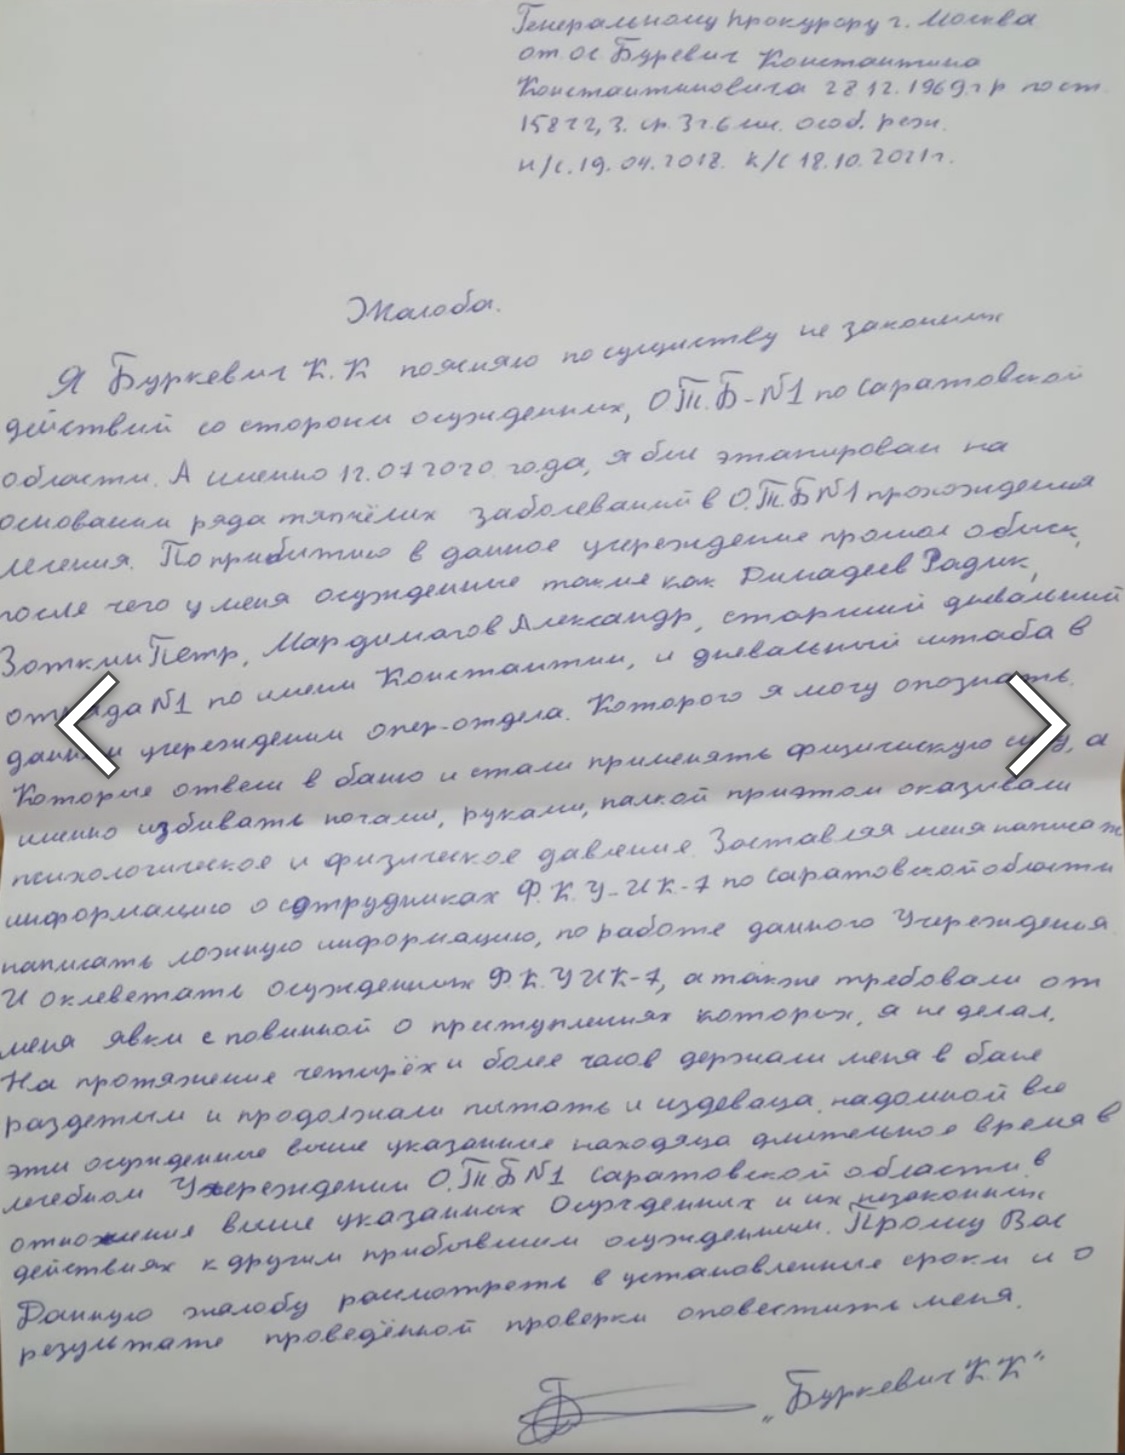 Генеральному прокурору г. Москва
от ос Буревич Константина
Константиновича 28.12.1969г р по ст.
158 ч 2, 3. ср. 3г. 6 мс. особ. реж.
н/с. 19. 04. 2018. к/с 18.10. 2021г.
Жалоба.
Я Буркевич К. К поясняю по сущиству не законных
действий со стороны осужденных, О.Т.Б-№1 по Саратовской
области. А именно 12.07 2020 года, я был этапирован на
основании ряда тяпчёлых заболеваний в О.Т.Б №1 прохождения
лечения. По прибытию в данное учереждение прошол обыск,
после чего у меня осужденные такие как Димадеев Радик,
Зоткин Пётр, Мардимагов Александр, старший дневальный
отряда №1 по имени Константин, и дневальный штаба в
данном учереждении опер-отдела. Которого я могу опознать.
Которые отвели в баню и стали применять физическую силу, а
именно избивать ногами, руками, палкой приэтом оказывали
психологическое и физическое давление. Заставляя меня написат
информацию о сотрудниках Ф. К. У-ИК-7 по Саратовской области
написать ложную информацию, по работе данного Учереждения
И оклеветать осужденных Ф.К.У ИК-7, а также требовали от
меня явки с повинной о приступлениях которых, я не делал.
На протяжение четырёх и более часов держали меня в бане
раздетым и продолжали пытать и издеваца надомной все
эти осужденные выше указанные находяца длительное время в
лечебном Учереждении О.Т.Б №1 Саратовской области. в
отношения выше указанных Осужденных и их незаконных
действиях к другим прибывшим осужденным. Прошу Вас
Данную жалобу расмотреть в установленные сроки и о
результате проведённой проверки оповестить меня.
„Буркевич К. К"